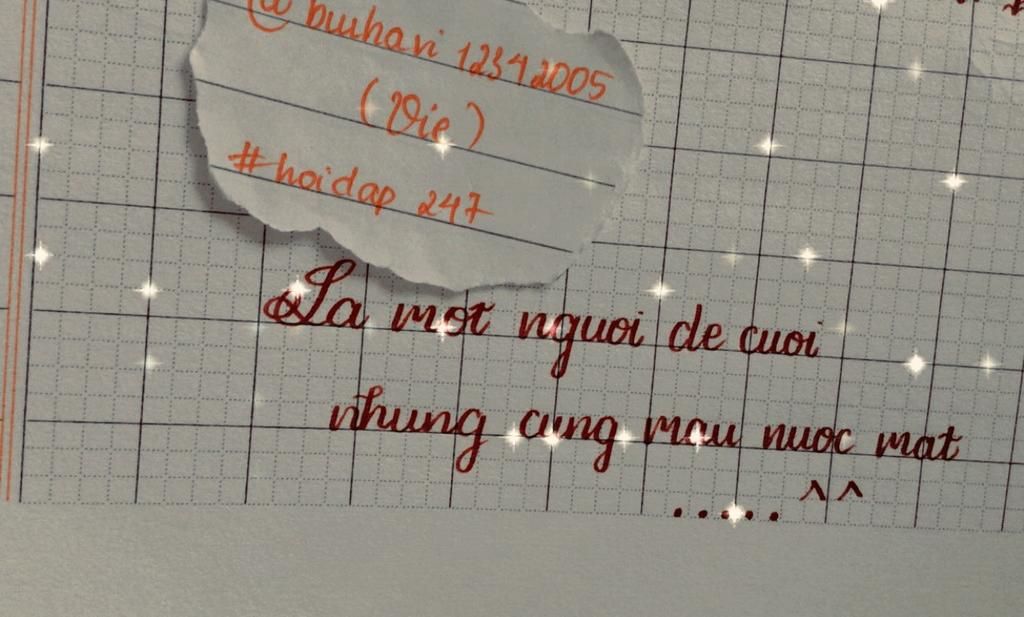 @ buihavi 12342005
(Vie)
#hoidap 247
La mot nguoi de cuoi
nhung cung mau nuoc mat
..... ^^